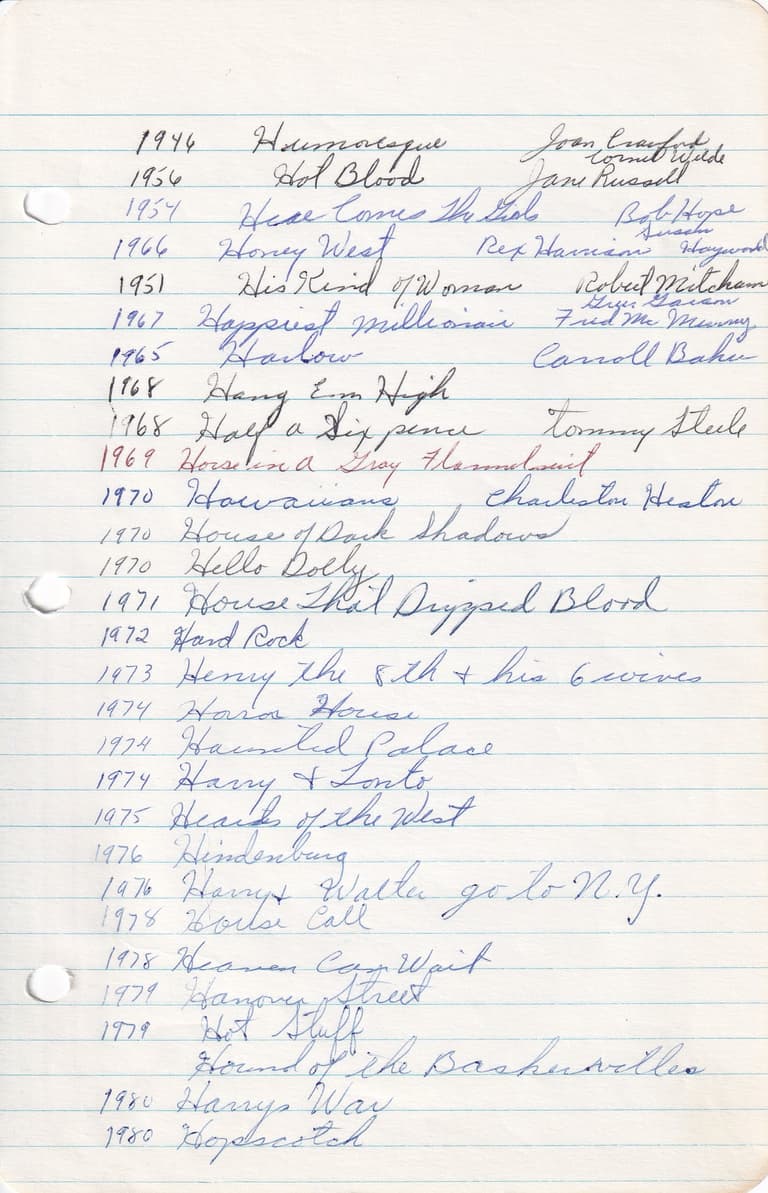 1946 Humoresque Joan Crawford
1956 Hot Blood Cornel Wilde Jane Russell
1954 Here Comes The Girls Bob Hope
1966 Honey West Rex Harrison Susan Hayward
1951 His Kind of Woman Robert Mitcham
1967 Happiest Millionair Greer Garson Fred Mc Murray
1965 Harlow Carroll Baker
1968 Hang Em High
1968 Half a Six pence Tommy Steele
1969 Horse in a Gray Flannel suit
1970 Hawaiians Charleston Heston
1970 House of Dark Shadows
1970 Hello Dolly
1971 House That Dripped Blood
1972 Hard Rock
1973 Henry the 8th + his 6 wives
1974 Horror House
1974 Haunted Palace
1974 Harry + Tonto
1975 Hearts of the West
1976 Hindenburg
1976 Harry + Walter go to N.Y.
1978 House Call
1978 Heaven Can Wait
1979 Hanover Street
1979 Hot Stuff
Hound of the Baskervilles
1980 Harrys War
1980 Hopscotch